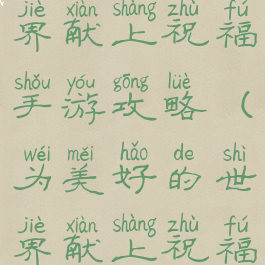 jiè xiàn shàng zhù fú
界献上祝福
shǒu yóu gōng lüè
手游攻略（
wéi měi hǎo de shì
为美好的世
jiè xiàn shàng zhù fú
界献上祝福